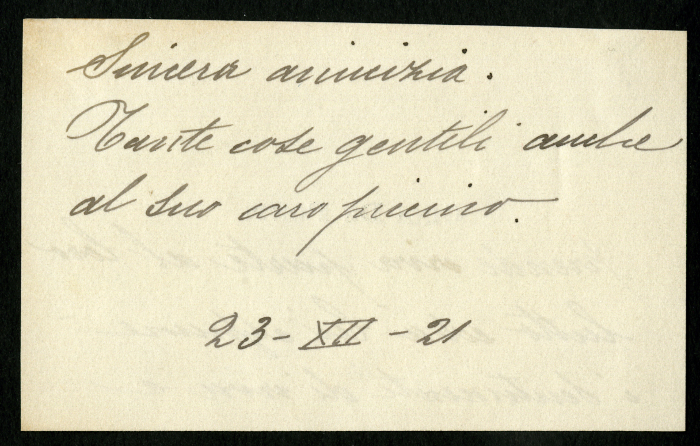 Sincera amicizia.
Tante cose gentili anche
al suo caro piccino.
23-XII-21